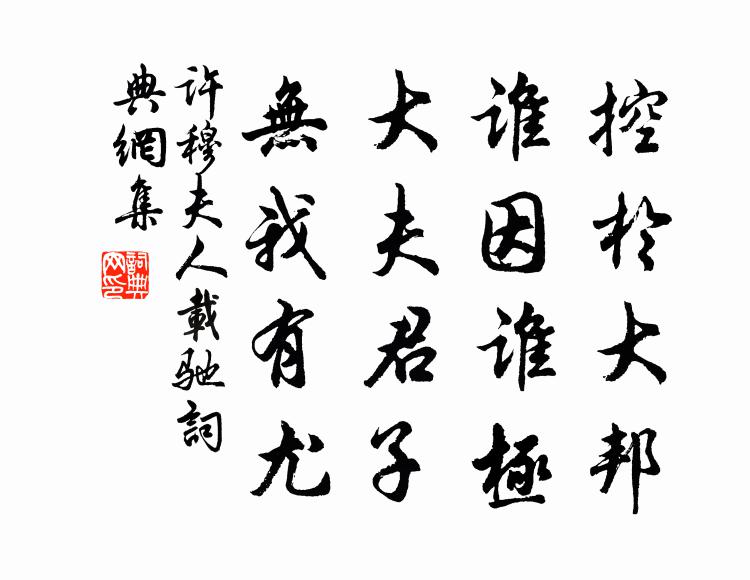 控於大邦
誰因誰極
大夫君子
無我有尤
許穆夫人載馳詞
典網集
詞典
网印